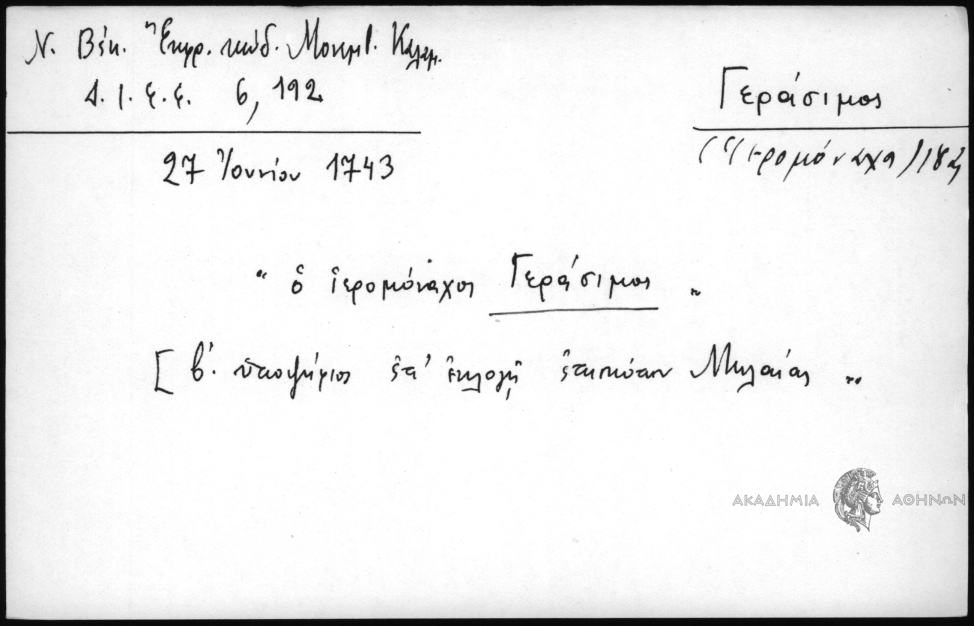 Ν. Βέη. Ἔκφρ. κώδ. Μονεμβ. Καλαμ.
Δ. Ι. Ε. Ε. 6, 192
Γεράσιμος
(Ἱερομόναχος)
27 Ἰουνίου 1743
" ὁ ἱερομόναχος Γεράσιμος "
[ β'. ὑποψήφιος ἐπ' ἐκλογῇ ἐπισκόπου
ΑΚΑΔΗΜΙΑ ΑΘΗΝΩΝ